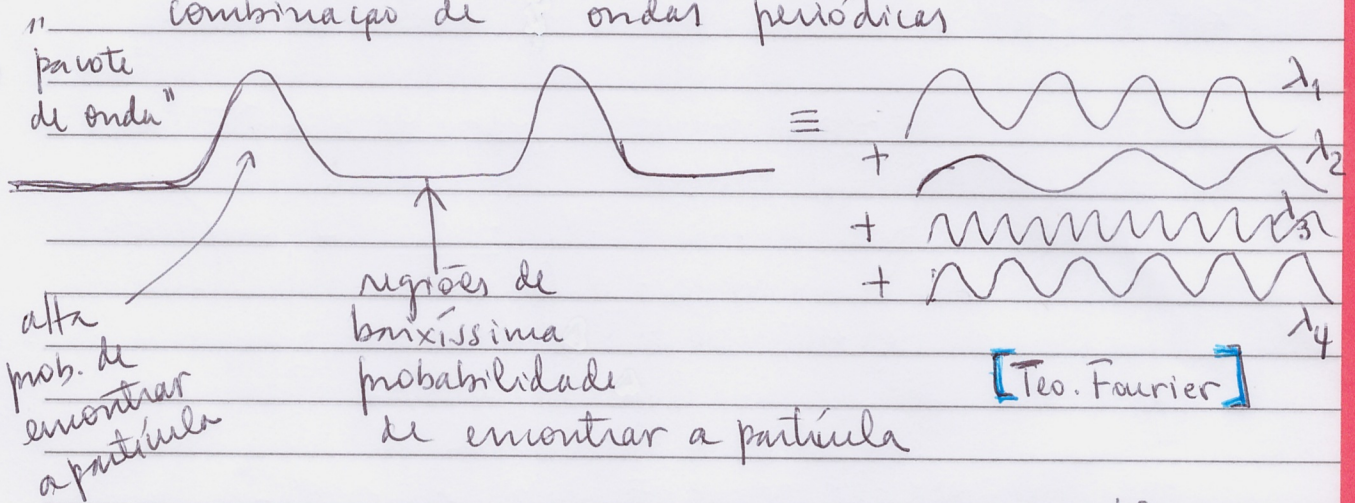 combinação de ondas periódicas
"pacote
de onda"
≡
λ1
+
λ2
+
λ3
+
λ4
alta
prob. de
encontrar
a partícula
regiões de
baixíssima
probabilidade
de encontrar a partícula
[Teo. Fourier]